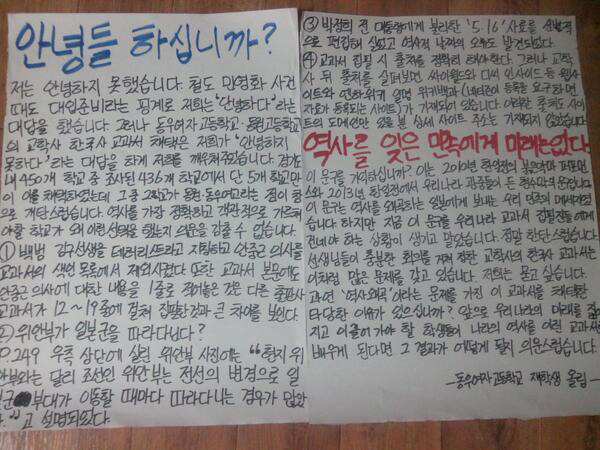 안녕들 하십니까?
저는 안녕하지 못했습니다. 철도 민영화 사건
때도 대입준비라는 핑계로 저희는 "안녕하다"라는
대답을 했습니다. 그러나 동우여자고등학교·동원고등학교
의 교학사 한국사 교과서 채택은 저희가 '안녕하지
못하다'라는 대답을 하게 저희를 깨우쳐주었습니다. 경기도
내 450개 학교 중 조사된 436개 학교에서 단 5개 학교만
이 이를 채택하였는데 그 중 2학교가 동원·동우여고라는 점이 참
으로 개탄스럽습니다. 역사를 가장 정확하고 객관적으로 가르쳐
야할 학교가 왜 이런 선택을 했는지 의문을 감출 수 없습니다.
① 백범 김구선생을 테러리스트라고 지칭하고 안중근 의사를
교과서의 색인 목록에서 제외시켰다. 또한 교과서 본문에도
안중근 의사에 대한 내용을 1줄로 적어놓은 것은 다른 출판사
교과서가 12~19줄에 걸쳐 집필한 것과 큰 차이를 보인다.
② 위안부가 일본군을 따라다닌다?
P.249 우측 상단에 실린 위안부 사진에는 "현지 위
안부와는 달리 조선인 위안부는 전선의 변경으로 일
본군 부대가 이동할 때마다 따라다니는 경우가 많았
다."고 설명되있다.
③ 박정희 전 대통령에게 불리한 '5.16' 사료를 선별적
으로 편집해 싣었고 역사적 날짜의 오류도 발견되었다.
④ 교과서 집필 시 출처를 정확히 해야한다. 그러나 교학
사 뒤 출처를 살펴보면 싸이월드와 디씨 인사이드 등 웹사
이트와 엔하위키 실명 위키백과(네티즌이 등록을 요구하면
자료가 등록되는 사이트)가 기재되어 있습니다. 이러한 출처도 사이
트의 도메인만 있을 뿐 상세 사이트 주소는 기재되지 않았습니다.
역사를 잊은 민족에게 미래는없다.
이 문구를 기억하십니까? 이는 2010년 한일전의 붉은악마 퍼포먼
스와 2013년 한일전에서 우리나라 관중들이 든 현수막의 문구입니다.
이 문구는 역사를 왜곡하는 일본에게 보내는 우리 민족의 메세지였
습니다. 하지만 지금 이 문구를 우리나라 교과서 집필진들에게
건네야 하는 상황이 생기고 말았습니다. 정말 한탄스럽습니다.
선생님들이 충분한 회의를 거쳐 정한 교학사의 한국사 교과서는
이처럼 많은 문제를 갖고 있습니다. 저희는 묻고 싶습니다.
과연 '역사왜곡'이라는 문제를 가진 이 교과서를 채택한
타당한 이유가 있으십니까? 앞으로 우리나라의 미래를 짊어
지고 이끌어 가야 할 학생들이 나라의 역사를 어긴 교과서로
배우게 된다면 그 결과가 어떻게 될지 의문스럽습니다.
-동우여자고등학교 재학생 올림-